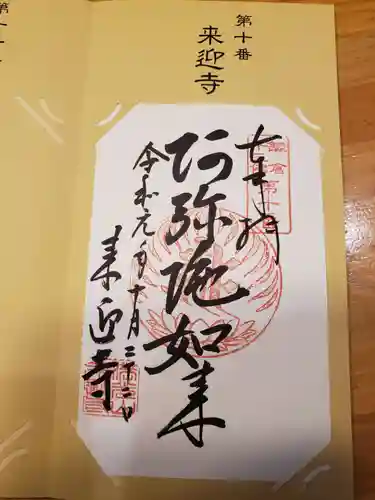 第十番
来迎寺
奉拝
阿弥陀如来
令和元年十月二十二日
来迎寺